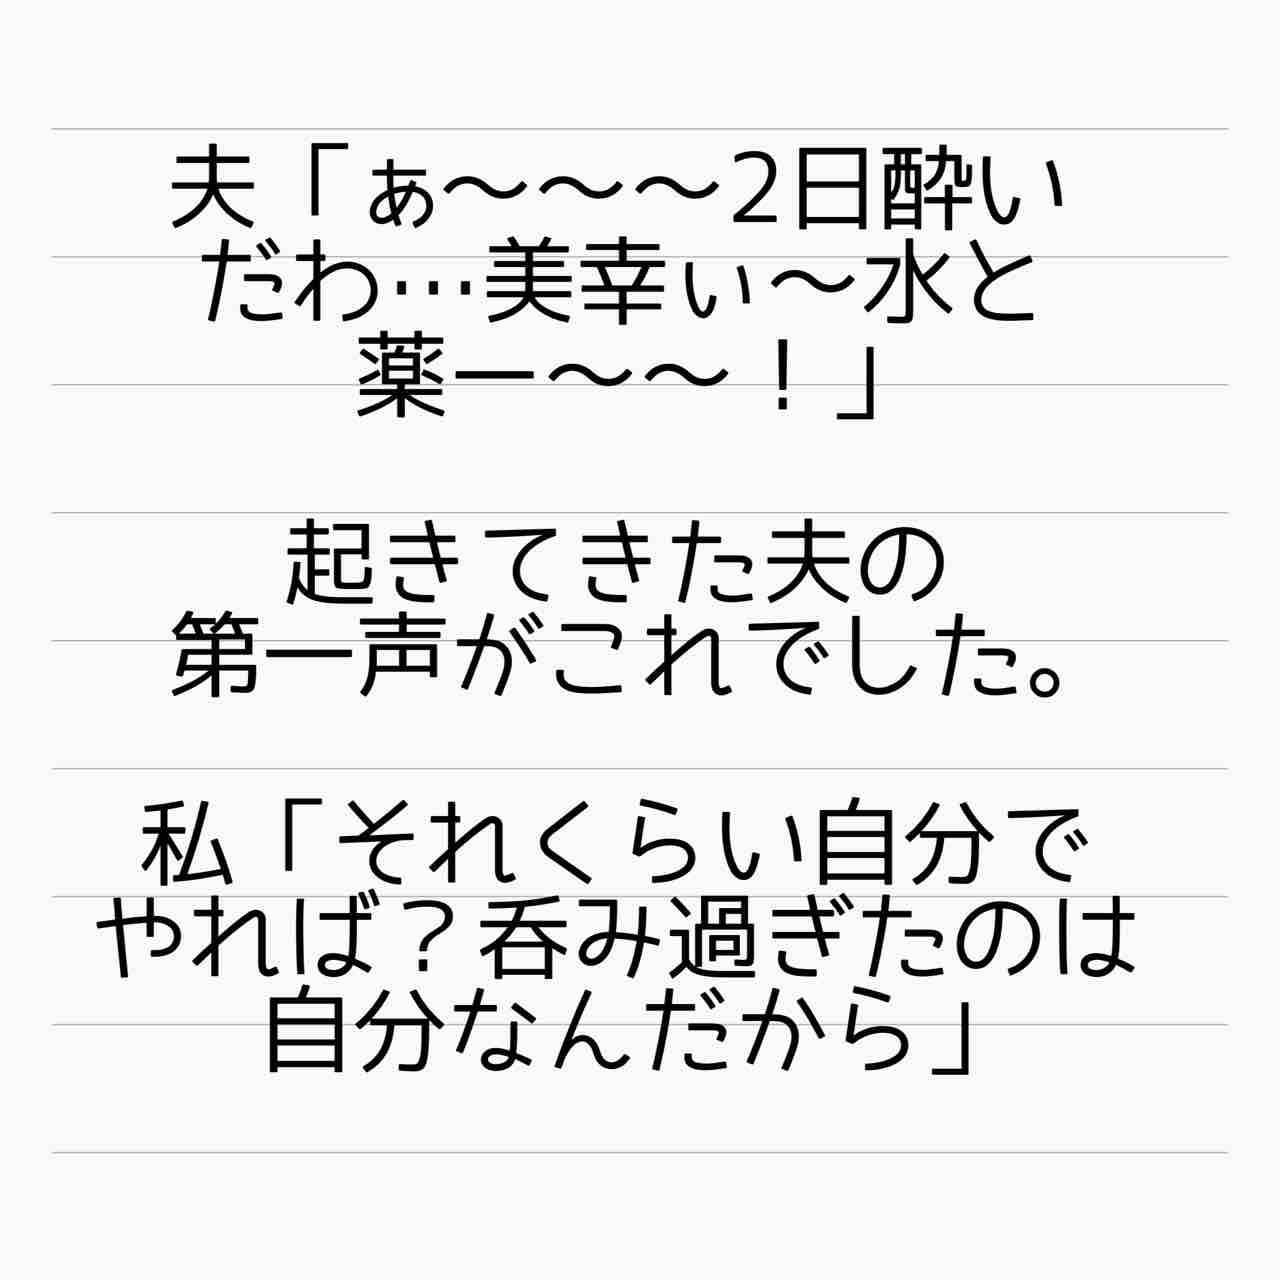 夫「ぁ〜〜〜2日酔い
だわ…美幸ぃ〜水と
薬ー〜〜！」
起きてきた夫の
第一声がこれでした。
私「それくらい自分で
やれば？呑み過ぎたのは
自分なんだから」